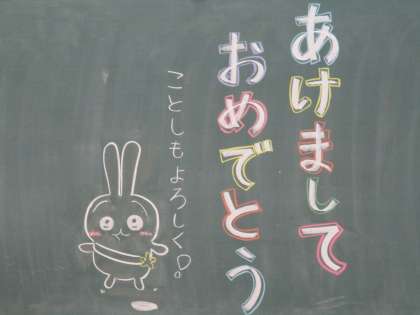 あけまして
おめでとう
ことしもよろしく!